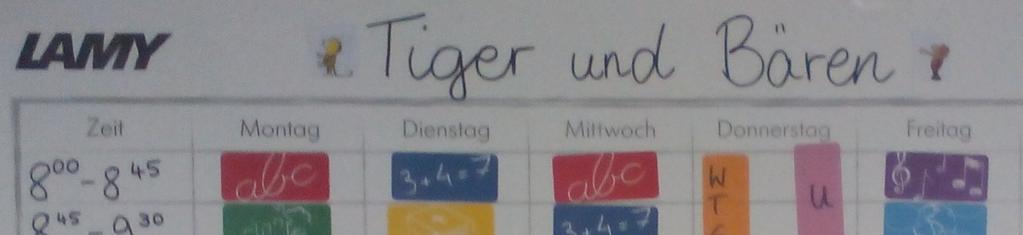 LAMY Tiger und Bären
Zeit Montag Dienstag Mittwoch Donnerstag Freitag
8⁰⁰-8⁴⁵ abc 3+4=7 abc W U
T
8⁴⁵-9³⁰ 3+4=7